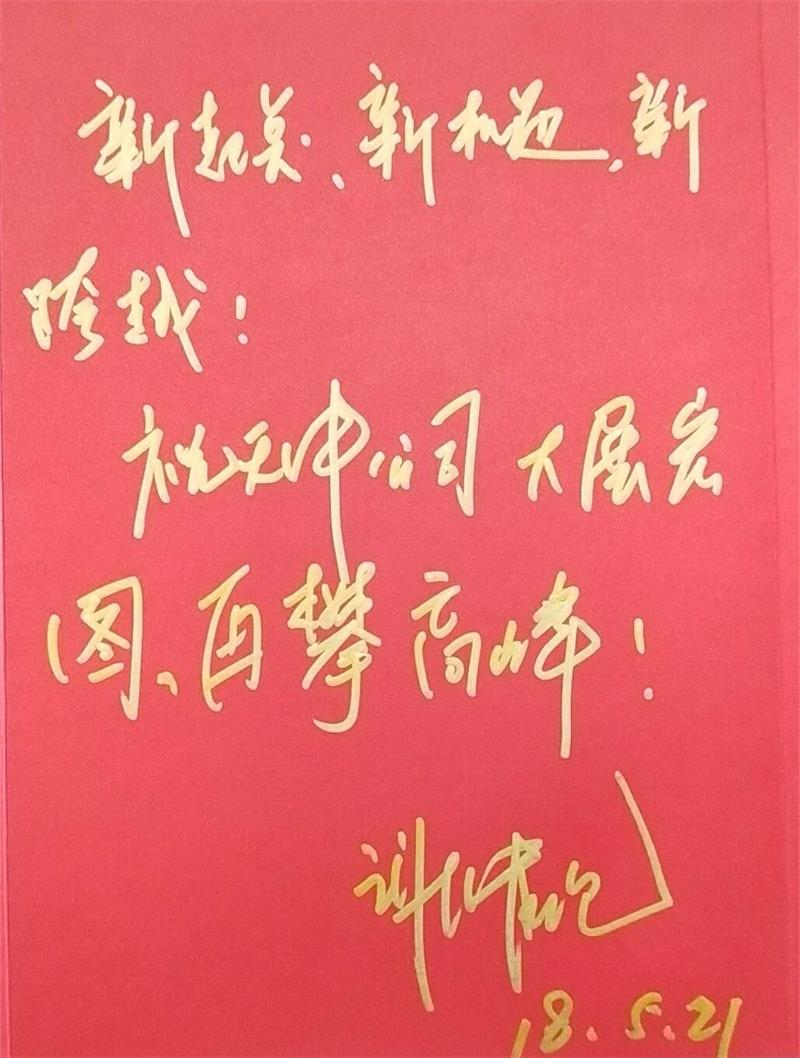 新起点、新机遇、新
跨越!
祝天中公司大展宏
图、再攀高峰!
18.5.21